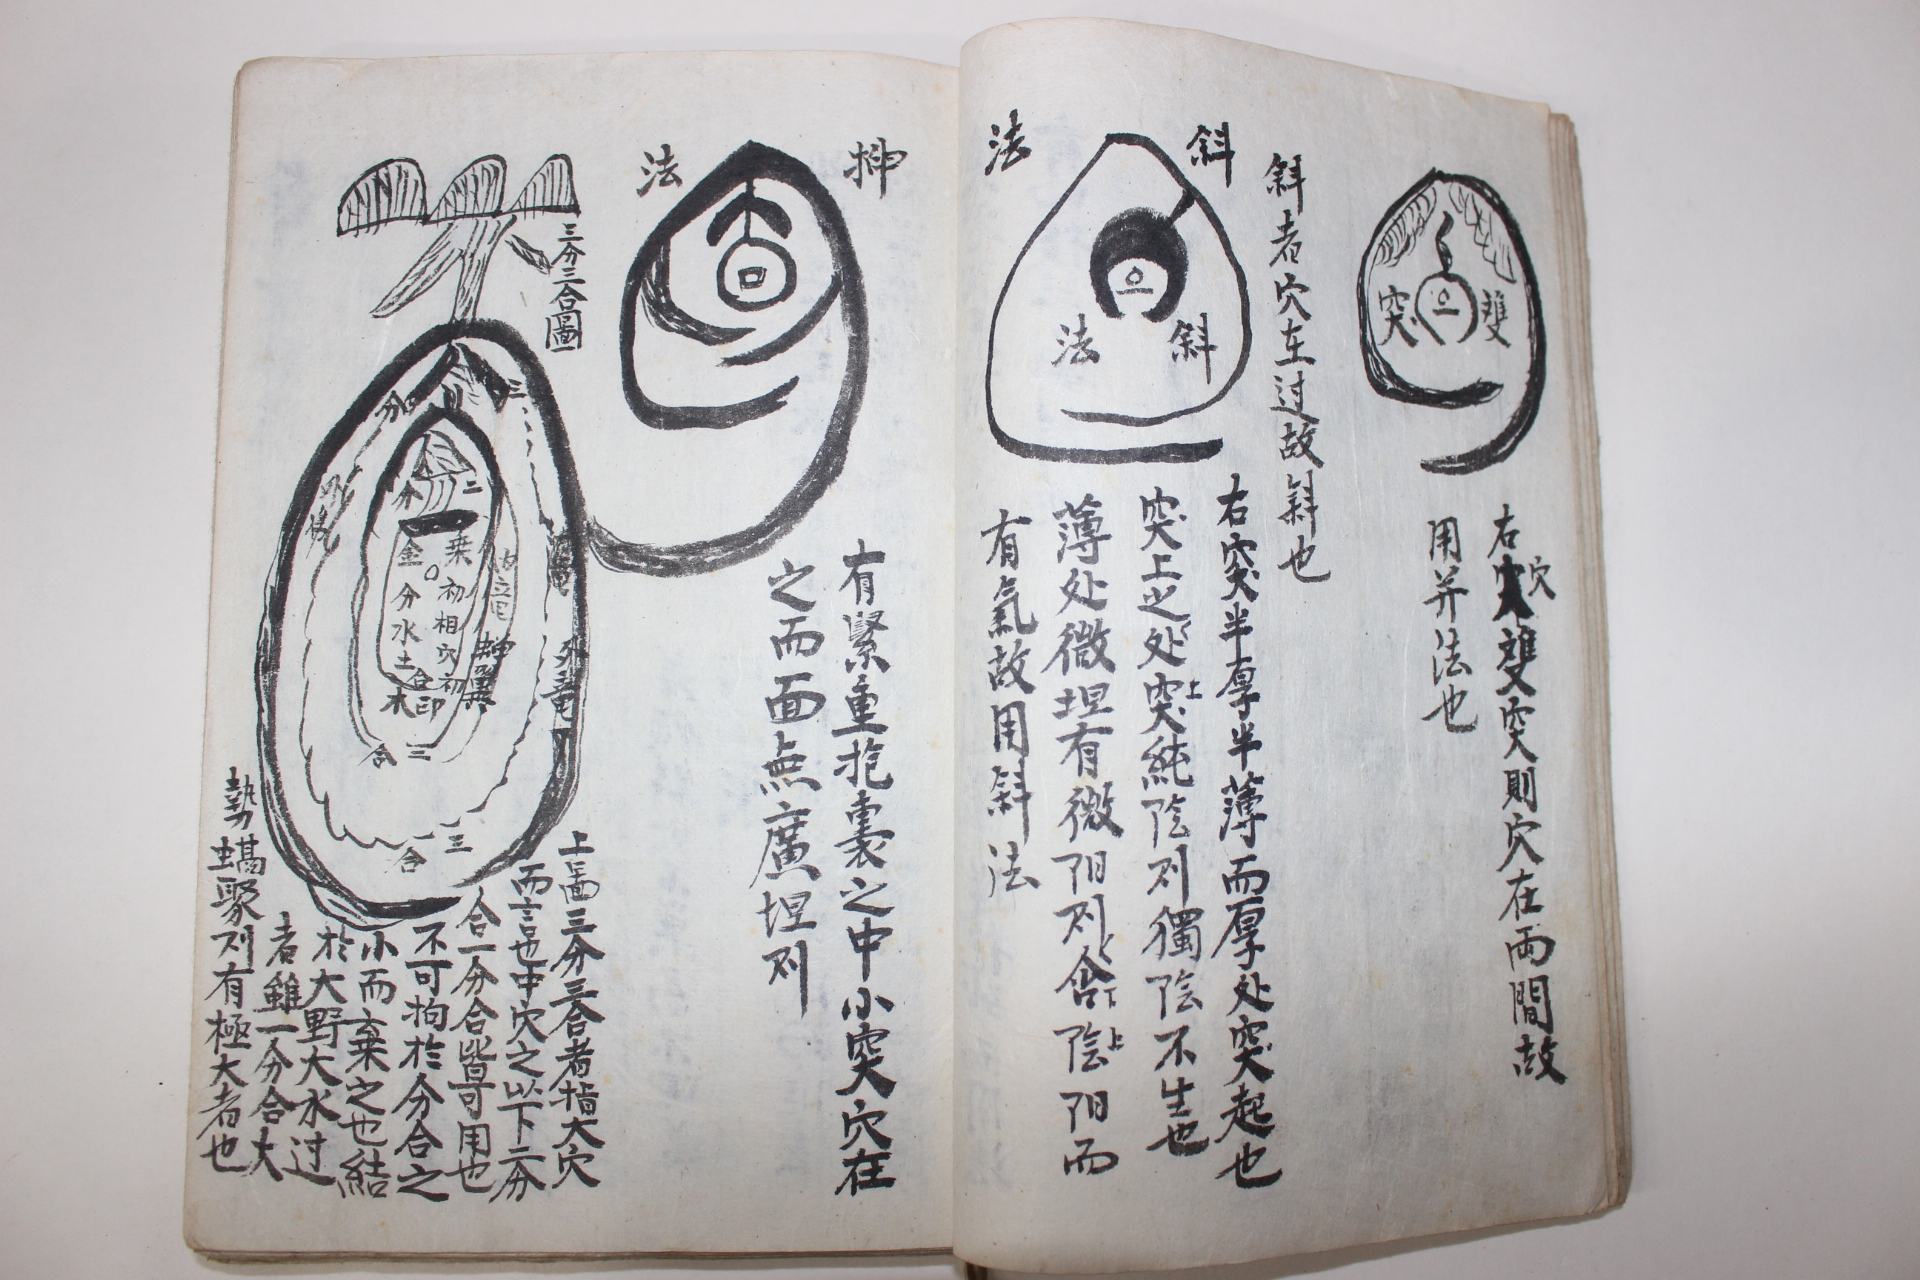 雙
突
右穴雙突則穴在兩間故
用并法也
斜者穴在过故斜也
斜
法
斜
法
右突半厚半薄而厚处突起也
突上之处突純陰则獨陰不生也
薄处微坦有微阳则含陰阳而
有氣故用斜法
抻
法
有緊重抱裹之中小突穴在
之而面点廣坦则
三分三合圖
三
分
二
分
乗
金
初相穴初
分水
土
合
印
木
蟬翼
三
合
三
合
上啚三分三合者指大穴
而言也中穴之以下二分
合一分合皆可用也
不可拘於分合之
小而棄之也結
於大野大水过
者雖一分合大
勢蝎聚则有極大者也